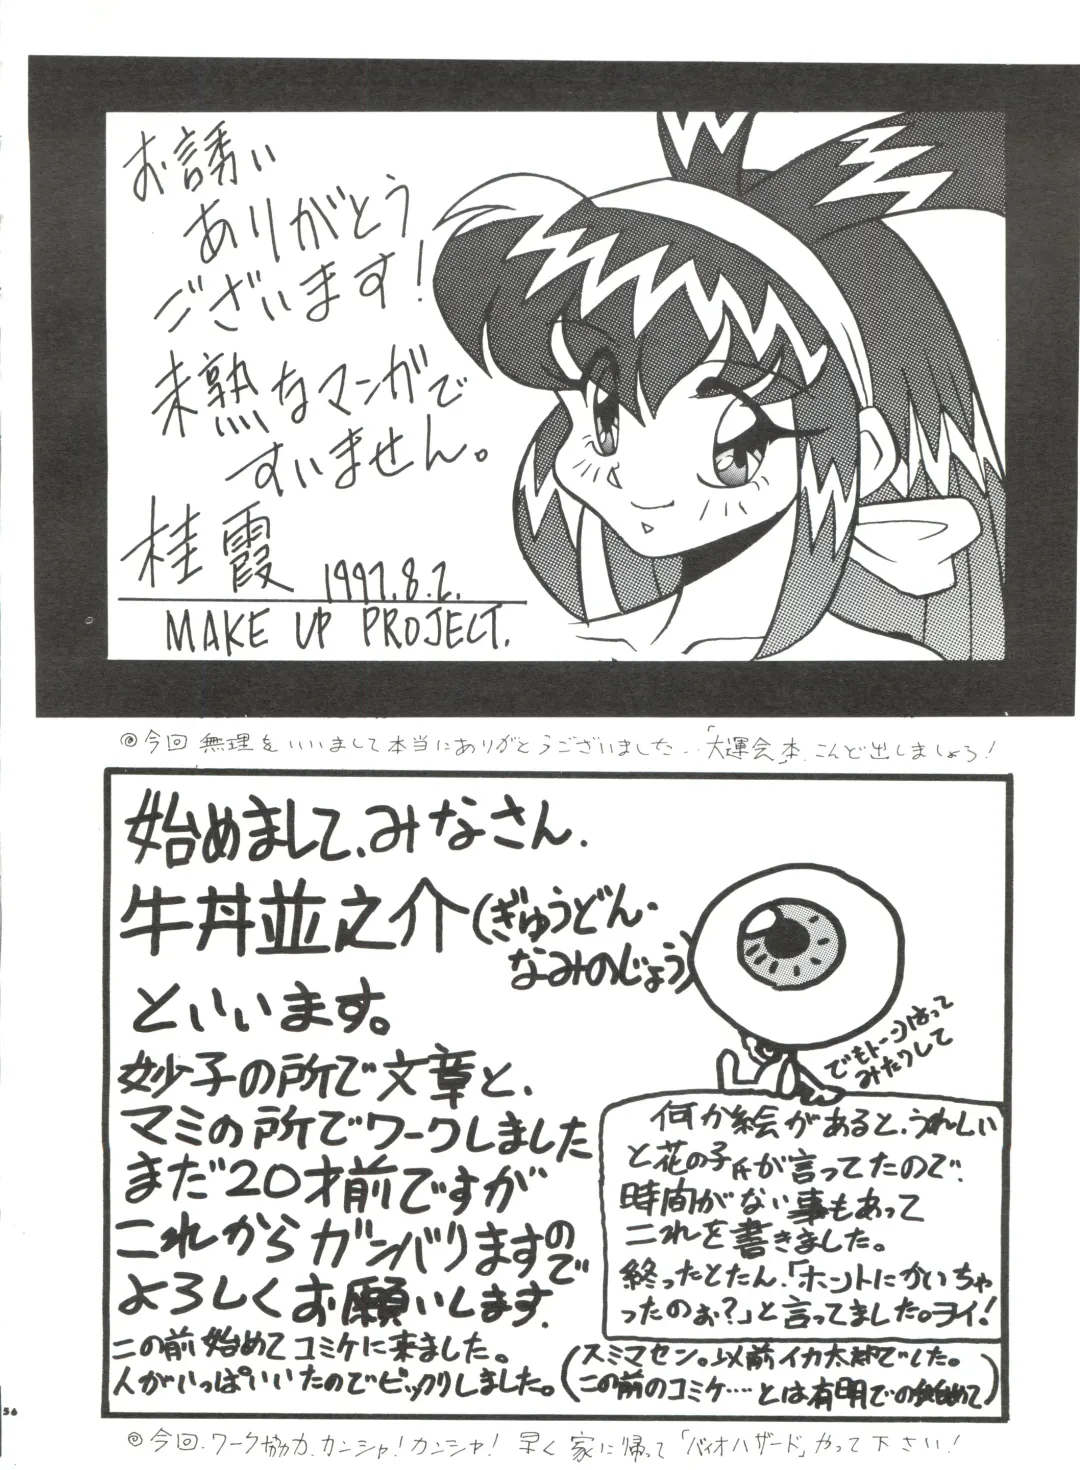 お誘い
ありがとう
ございます!
未熟なマンガで
すいません。
桂霞 1997.8.2.
MAKE UP PROJECT.
◎今回無理をいいまして本当にありがとうございました‥「大運会」本、こんど出しましょう!
始めまして、みなさん.
牛丼並之介(ぎゅうどん・
なみのじょう)
といいます。
妙子の所で文章と、
マミの所でワークしました
まだ20才前ですが
これからガンバりますので
よろしくお願いします.
この前始めてコミケに来ました。
人がいっぱいいたのでビックリしました。
(スミマセン。以前イカ太郎でした。
この前のコミケ‥‥とは有明での始めて)
でもトーンはって
みたりして
何か絵があると、うれしい
と花の子氏が言ってたので、
時間がない事もあって
これを書きました。
終ったとたん、「ホントにかいちゃ
ったのぉ?」と言ってました。ヨイ!
◎今回、ワーク協力、カンシャ!カンシャ! 早く家に帰って「バイオハザード」やって下さい!
56